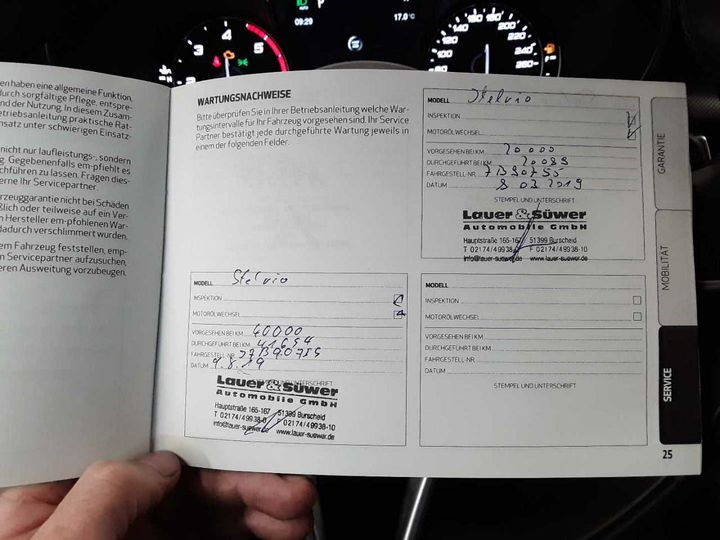 09:29
17.0°C
en haben eine allgemeine Funktion,
durch sorgfältige Pflege, entspre-
nd der Nutzung. In diesem Zusam-
etriebsanleitung praktische Rat-
nsatz unter schwierigen Einsatz-
nicht nur laufleistungs-, sondern
g. Gegebenenfalls em-pfiehlt es
chführen zu lassen. Fragen dies-
erne Ihr Servicepartner.
rzeuggarantie nicht bei Schäden
ßlich oder teilweise auf ein Ver-
n Hersteller em-pfohlenen War-
dadurch verschlimmert wurden.
em Fahrzeug feststellen, emp-
n Servicepartner aufzusuchen,
eren Ausweitung vorzubeugen.
WARTUNGSNACHWEISE
Bitte überprüfen Sie in Ihrer Betriebsanleitung welche War-
tungsintervalle für Ihr Fahrzeug vorgesehen sind. Ihr Service
Partner bestätigt jede durchgeführte Wartung jeweils in
einem der folgenden Felder.
MODELL Stelvio
INSPEKTION
MOTORÖLWECHSEL
VORGESEHEN BEI KM 20000
DURCHGEFÜHRT BEI KM 20088
FAHRGESTELL-NR. 7B90755
DATUM 8.03.2019
STEMPEL UND UNTERSCHRIFT
Lauer & Süwer
Automobile GmbH
Hauptstraße 165-167 51399 Burscheid
T 02174/49938-0 F 02174/49938-10
info@lauer-suewer.de www.lauer-suewer.de
MODELL Stelvio
INSPEKTION
MOTORÖLWECHSEL
VORGESEHEN BEI KM 40000
DURCHGEFÜHRT BEI KM 41654
FAHRGESTELL-NR.
DATUM
STEMPEL UND UNTERSCHRIFT
Lauer & Süwer
Automobile GmbH
Hauptstraße 165-167 51399 Burscheid
T 02174/49938-0 F 02174/49938-10
info@lauer-suewer.de www.lauer-suewer.de
MODELL
INSPEKTION
MOTORÖLWECHSEL
VORGESEHEN BEI KM
DURCHGEFÜHRT BEI KM
FAHRGESTELL-NR.
DATUM
STEMPEL UND UNTERSCHRIFT
GARANTIE
MOBILITÄT
SERVICE
25